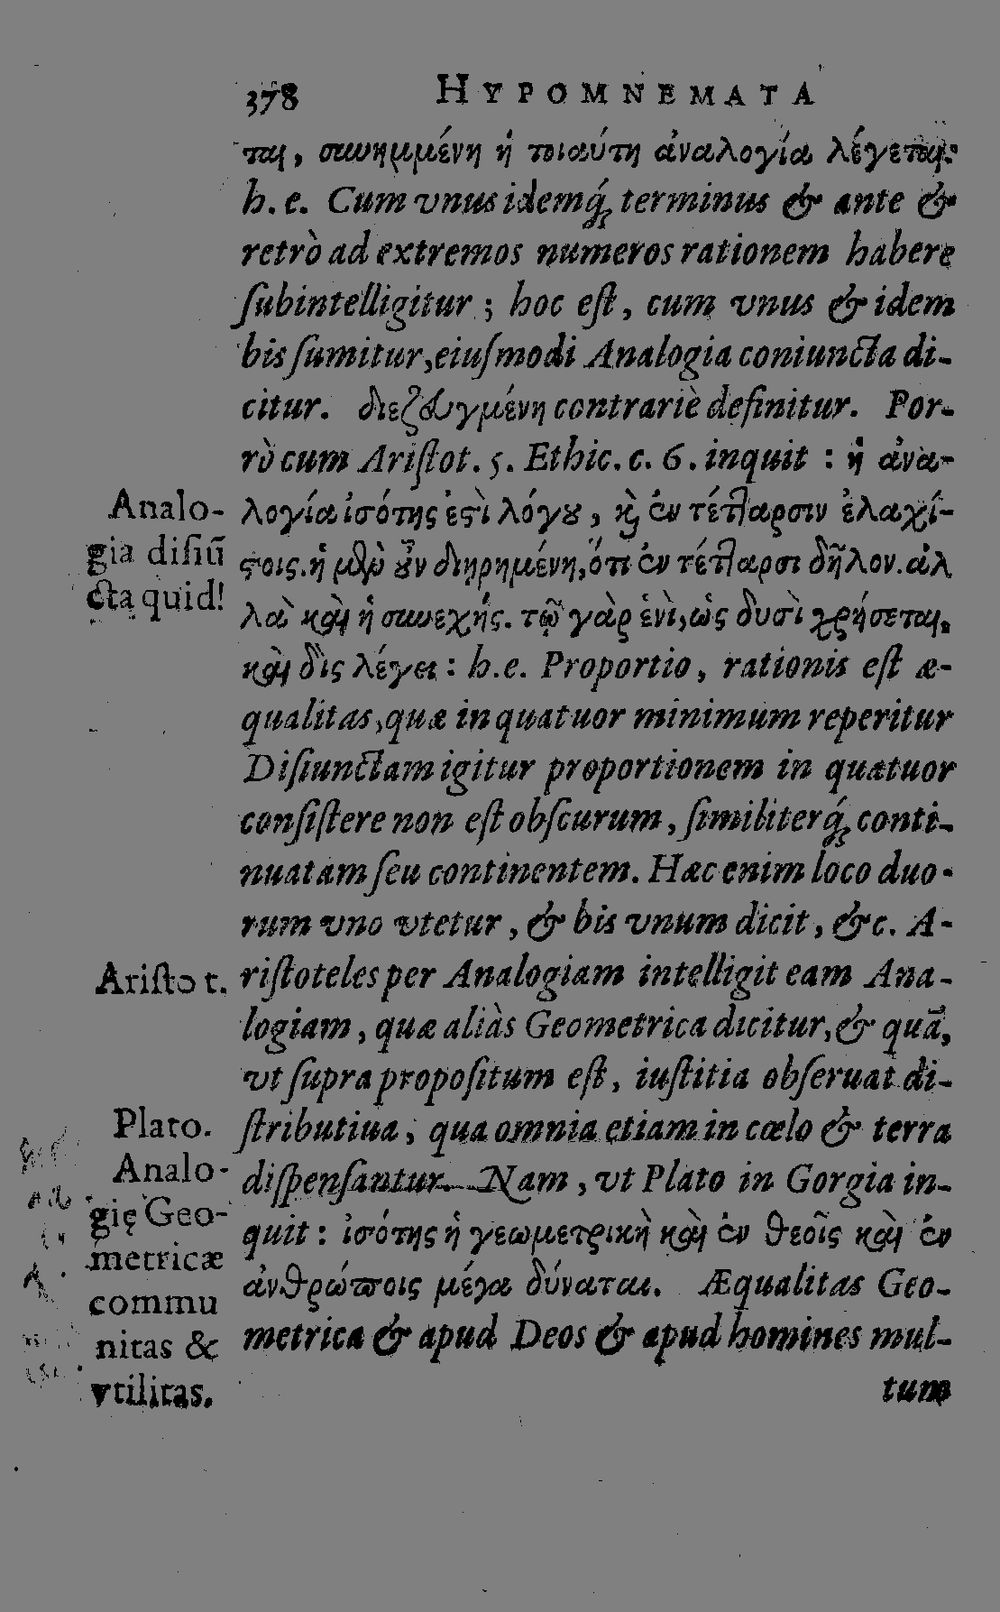 378 HYPOMNEMATA
ται, συνημμένη ἡ τοιαύτη ἀναλογία λέγεται:
h. e. Cum vnus idemq́; terminus & ante &
retrò ad extremos numeros rationem habere
ſubintelligitur ; hoc eſt, cum vnus & idem
bis ſumitur, eiuſmodi Analogia coniuncta di-
citur. διεζευγμένη contrariè definitur. Por-
rò cum Ariſtot. 5. Ethic. c. 6. inquit : ἡ ἀνα-
λογία ἰσότης ἐςὶ λόγȣ, κ̀ ἐν τέτταρσιν ἐλαχί-
ςοις. ἡ μὲν ȣ̓ν διῃρημένη, ὅτι ἐν τέτταρσι δῆλον. ἀλ
λὰ καὶ ἡ συνεχής. τῷ γὰρ ἑνὶ, ὡς δυσὶ χρήσεται,
καὶ δὶς λέγει : h.e. Proportio, rationis eſt æ-
qualitas, quæ in quatuor minimum reperitur
Diſiunctam igitur proportionem in quatuor
conſiſtere non eſt obſcurum, ſimiliterq́; conti-
nuatam ſeu continentem. Hæc enim loco duo-
rum vno vtetur, & bis vnum dicit, &c. A-
riſtoteles per Analogiam intelligit eam Ana-
logiam, quæ aliàs Geometrica dicitur, & quã,
vt ſupra propoſitum eſt, iuſtitia obſeruat di-
ſtributiua, qua omnia etiam in cœlo & terra
diſpenſantur. Nam, vt Plato in Gorgia in-
quit : ἰσότης ἡ γεωμετρικὴ καὶ ἐν θεοῖς καὶ ἐν
ἀνθρώποις μέγα δύναται. Æqualitas Geo-
metrica & apud Deos & apud homines mul-
tum
Analo-
gia diſiũ
cta quid!
Ariſtot.
Plato.
Analo-
gię Geo-
metricæ
commu
nitas &
vtilitas.